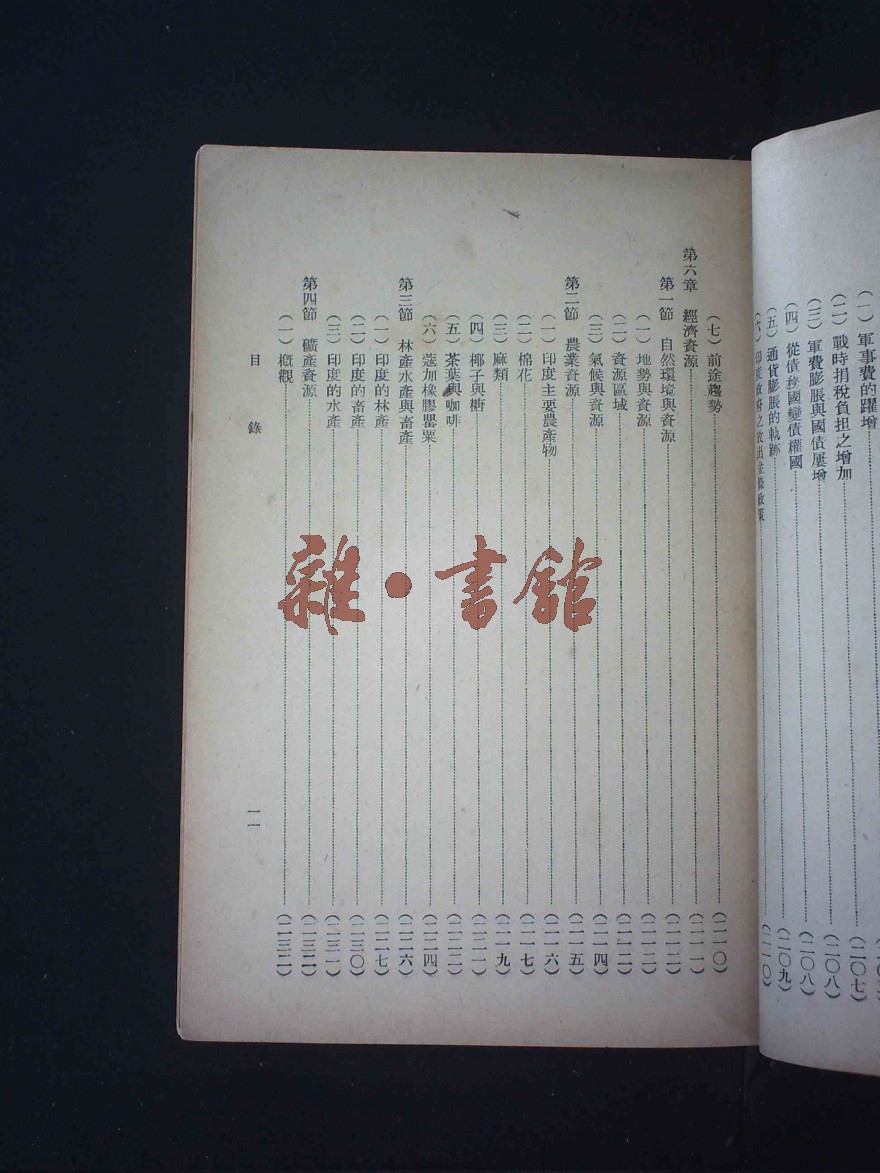 (一) 軍事費的躍增(二〇七)
(二) 戰時捐稅負担之增加(二〇八)
(三) 軍費膨脹與國債屢增(二〇八)
(四) 從債務國變債權國(二〇九)
(五) 通貨膨脹的軌跡(二一〇)
(六) 印度政府之放出金條政策
(七) 前途趨勢(二一〇)
第六章 經濟資源(二一一)
第一節 自然環境與資源(二一二)
(一) 地勢與資源(二一二)
(二) 資源區域(二一二)
(三) 氣候與資源(二一四)
第二節 農業資源(二一五)
(一) 印度主要農產物(二一六)
(二) 棉花(二一七)
(三) 麻類(二一九)
(四) 椰子與糖(二二一)
(五) 茶葉與咖啡(二二三)
(六) 蔻加橡膠罌粟(二二四)
第三節 林產水產與畜產(二二六)
(一) 印度的林產(二二七)
(二) 印度的畜產(二三〇)
(三) 印度的水產(二三一)
第四節 礦產資源(二三二)
(一) 概觀(二三二)
目錄 一一
雜·書館